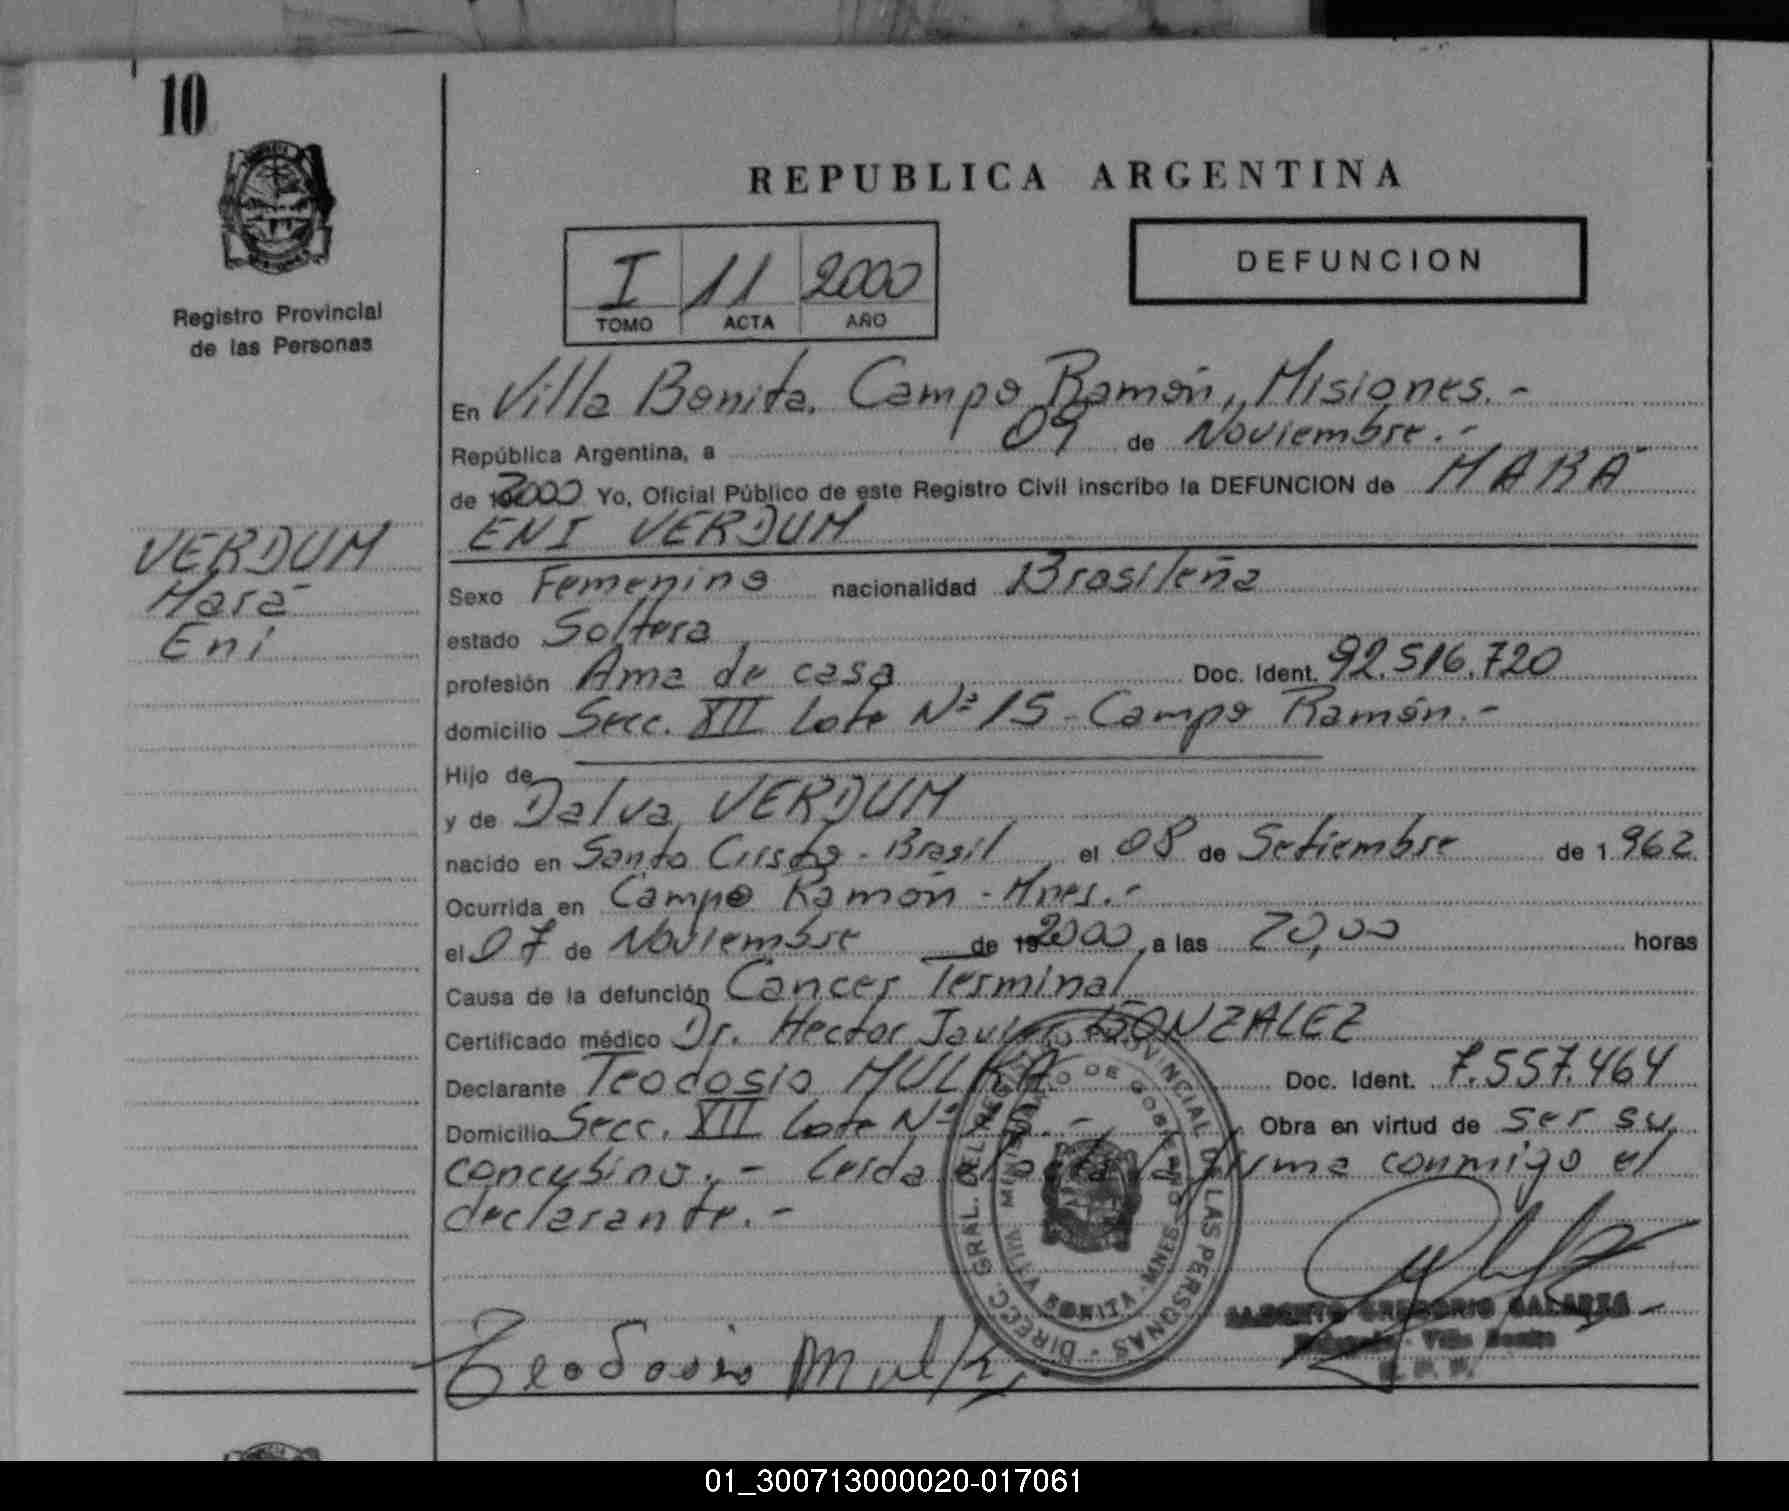 10
REPUBLICA ARGENTINA
I 11 2000
TOMO ACTA AÑO
DEFUNCION
Registro Provincial
de las Personas
En Villa Bonita. Campo Ramón, Misiones.-
República Argentina, a 09 de Noviembre.-
de 2000 Yo, Oficial Público de este Registro Civil inscribo la DEFUNCION de MARA
ENI VERDUM
VERDUM
Mara
Eni
Sexo Femenino nacionalidad Brasileña
estado Soltera
profesión Ama de casa Doc. Ident. 92.516.720
domicilio Secc. XII Lote Nº 15 - Campo Ramón.-
Hijo de
y de Dalva VERDUM
nacido en Santo Cristo - Brasil el 08 de Setiembre de 1.962
Ocurrida en Campo Ramón - Mnes.-
el 07 de Noviembre de 2000 a las 20,00 horas
Causa de la defunción Cancer Terminal
Certificado médico Dr. Hector Javier GONZALEZ
Declarante Teodosio MULKA Doc. Ident. 7.557.464
Domicilio Secc. XII Lote Nº Obra en virtud de ser su
concubino.- Leida el acta la firma conmigo el
declarante.-
DIRECC. GRAL. DEL REGISTRO PROVINCIAL DE LAS PERSONAS
MINISTERIO DE GOBIERNO
VILLA BONITA - MNES.
Teodosio Mulka
GREGORIO GALARZA
Villa Bonita
01_300713000020-017061